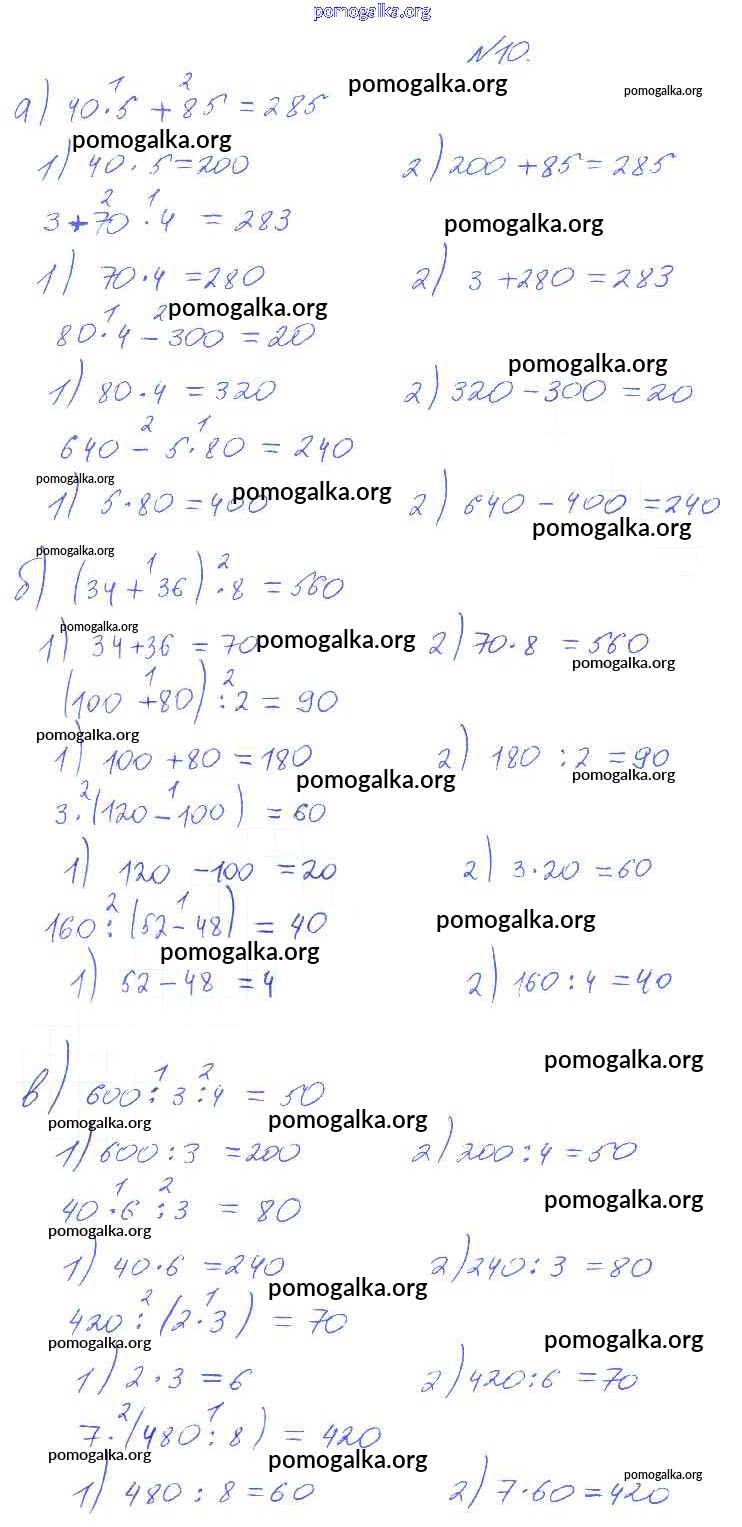 pomogalka.org
№10.
pomogalka.org pomogalka.org
а) 40·5 + 85 = 285
1 2
pomogalka.org
1) 40 · 5 = 200 2) 200 + 85 = 285
2 1
3 + 70 · 4 = 283 pomogalka.org
1) 70·4 = 280 2) 3 + 280 = 283
1 2 pomogalka.org
80·4 - 300 = 20
pomogalka.org
1) 80·4 = 320 2) 320 - 300 = 20
2 1
640 - 5·80 = 240
pomogalka.org pomogalka.org
1) 5·80 = 400 2) 640 - 400 = 240
pomogalka.org
pomogalka.org
1 2
б) (34 + 36) · 8 = 560
pomogalka.org pomogalka.org
1) 34 + 36 = 70 2) 70·8 = 560
pomogalka.org
1 2
(100 + 80) : 2 = 90
pomogalka.org
1) 100 + 80 = 180 2) 180 : 2 = 90
pomogalka.org pomogalka.org
2 1
3·(120 - 100) = 60
1) 120 - 100 = 20 2) 3·20 = 60
2 1
160 : (52 - 48) = 40 pomogalka.org
pomogalka.org
1) 52 - 48 = 4 2) 160 : 4 = 40
pomogalka.org
1 2
в) 600 : 3 : 4 = 50
pomogalka.org pomogalka.org
1) 600 : 3 = 200 2) 200 : 4 = 50
1 2
40·6 : 3 = 80 pomogalka.org
pomogalka.org
1) 40·6 = 240 2) 240 : 3 = 80
pomogalka.org
2 1
420 : (2·3) = 70
pomogalka.org pomogalka.org
1) 2·3 = 6 2) 420 : 6 = 70
2 1
7·(480 : 8) = 420
pomogalka.org pomogalka.org pomogalka.org
1) 480 : 8 = 60 2) 7·60 = 420